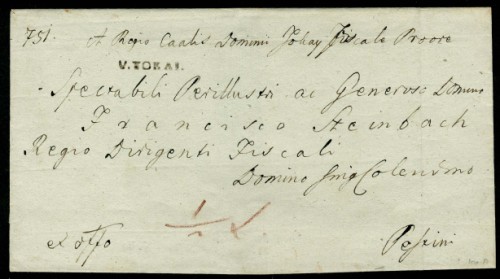 751. A Regio Caalis Dominii Tokay Fiscale Proore
V. TOKAI.
Spectabili Perillustri ac Generoso Domino
Francisco Steinbach
Regio Dirigenti Fiscali
Domino Sing Colendmo
ex offo
Pestini